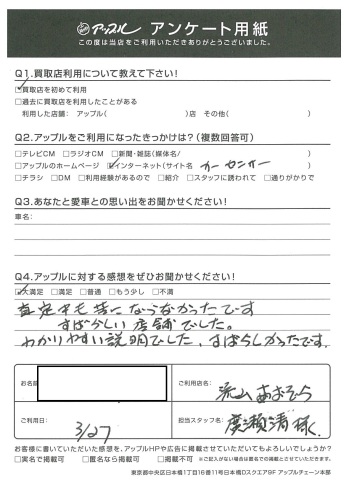 アップル アンケート用紙
この度は当店をご利用いただきありがとうございました。
Q1.買取店利用について教えて下さい!
☑買取店を初めて利用
□過去に買取店を利用したことがある
利用した店舗: アップル( )店 その他( )
Q2.アップルをご利用になったきっかけは?(複数回答可)
□テレビCM □ラジオCM □新聞・雑誌(媒体名/ )
□アップルのホームページ ☑インターネット(サイト名 カーセンサー )
□チラシ □DM □利用経験があるので □紹介 □スタッフに誘われて □通りがかりで
Q3.あなたと愛車との思い出をお聞かせください!
車名:
Q4.アップルに対する感想をぜひお聞かせください!
☑大満足 □満足 □普通 □もう少し □不満
査定中も苦にならなかったです
すばらしい店舗でした。
わかりやすい説明でした、すばらしかったです.
お名前
ご利用店名: 流山おおぞら
ご利用日: 3/27
担当スタッフ名: 廣瀬清様.
お客様に書いていただいた感想を、アップルHPや広告に掲載させていただいてもよろしいでしょうか?
□実名で掲載可 □匿名なら掲載可 □掲載不可 ※ご記入がない場合は匿名での掲載とさせていただきます。
東京都中央区日本橋1丁目16番11号日本橋Dスクエア9F アップルチェーン本部